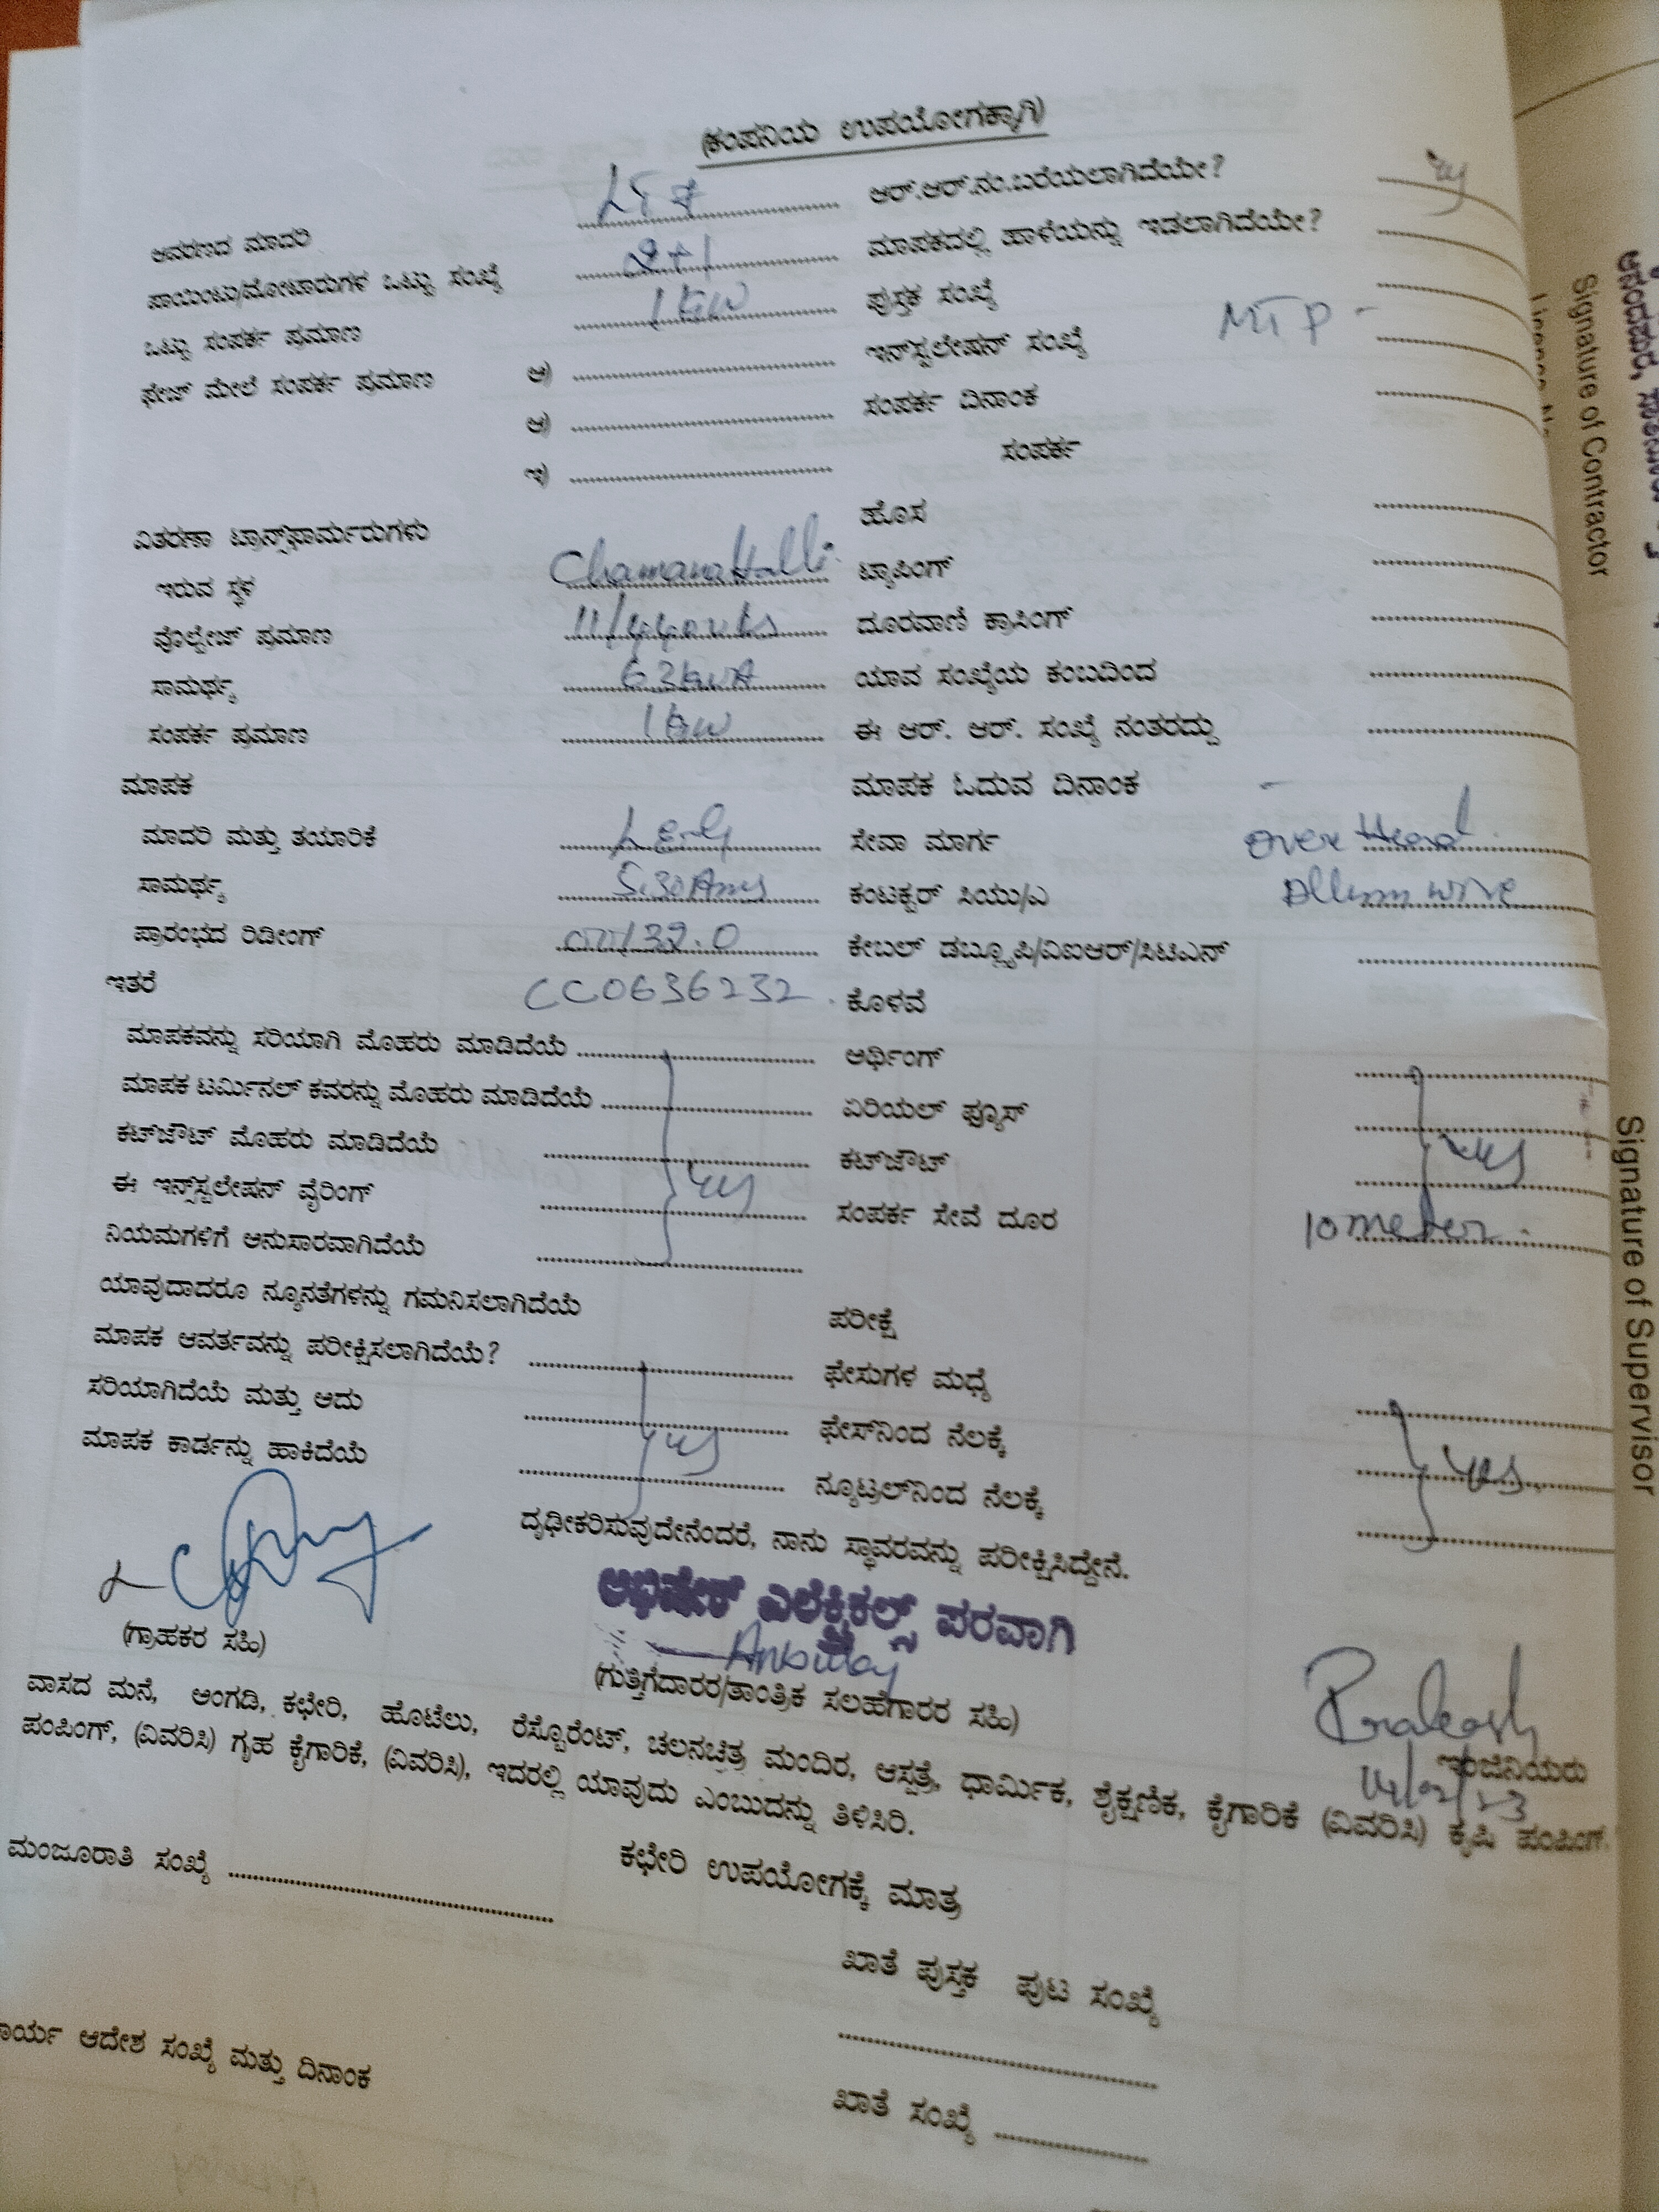 (ಕಂಪನಿಯ ಉಪಯೋಗಕ್ಕಾಗಿ)
ಆವರಣದ ಮಾದರಿ LT 7 ಆರ್.ಆರ್.ನಂ.ಬರೆಯಲಾಗಿದೆಯೇ?
ಪಾಯಿಂಟು/ಮೋಟಾರುಗಳ ಒಟ್ಟು ಸಂಖ್ಯೆ 2+1 ಮಾಪಕದಲ್ಲಿ ಹಾಳೆಯನ್ನು ಇಡಲಾಗಿದೆಯೇ?
ಒಟ್ಟು ಸಂಪರ್ಕ ಪ್ರಮಾಣ 1 KW ಪುಸ್ತಕ ಸಂಖ್ಯೆ
ಫೇಜ್ ಮೇಲೆ ಸಂಪರ್ಕ ಪ್ರಮಾಣ ಅ) ಇನ್‌ಸ್ಟಲೇಷನ್ ಸಂಖ್ಯೆ MTP -
ಆ) ಸಂಪರ್ಕ ದಿನಾಂಕ
ಇ) ಸಂಪರ್ಕ
ವಿತರಣಾ ಟ್ರಾನ್ಸ್‌ಫಾರ್ಮರುಗಳು ಹೊಸ
ಇರುವ ಸ್ಥಳ ChamanaHalli ಟ್ಯಾಪಿಂಗ್
ವೊಲ್ಟೇಜ್ ಪ್ರಮಾಣ 11/440 ದೂರವಾಣಿ ಕ್ರಾಸಿಂಗ್
ಸಾಮರ್ಥ್ಯ 63 KVA ಯಾವ ಸಂಖ್ಯೆಯ ಕಂಬದಿಂದ
ಸಂಪರ್ಕ ಪ್ರಮಾಣ 1 KW ಈ ಆರ್. ಆರ್. ಸಂಖ್ಯೆ ನಂತರದ್ದು
ಮಾಪಕ ಮಾಪಕ ಓದುವ ದಿನಾಂಕ -
ಮಾದರಿ ಮತ್ತು ತಯಾರಿಕೆ L&G ಸೇವಾ ಮಾರ್ಗ Over Head
ಸಾಮರ್ಥ್ಯ 5.30 Amp ಕಂಟಕ್ಟರ್ ಸಿಯು/ಎ Allum wire
ಪ್ರಾರಂಭದ ರಿಡೀಂಗ್ ಕೇಬಲ್ ಡಬ್ಲ್ಯೂಪಿ/ವಿಐಆರ್/ಸಿಟಿಎಸ್
ಇತರೆ CC0636232 ಕೊಳವೆ
ಮಾಪಕವನ್ನು ಸರಿಯಾಗಿ ಮೊಹರು ಮಾಡಿದೆಯೆ ಅರ್ಥಿಂಗ್
ಮಾಪಕ ಟರ್ಮಿನಲ್ ಕವರನ್ನು ಮೊಹರು ಮಾಡಿದೆಯೆ ಏರಿಯಲ್ ಫ್ಯೂಸ್
ಕಟ್‌ಔಟ್ ಮೊಹರು ಮಾಡಿದೆಯೆ ಕಟ್‌ಔಟ್ yes
ಈ ಇನ್ಸ್‌ಸ್ಟಲೇಷನ್ ವೈರಿಂಗ್ yes ಸಂಪರ್ಕ ಸೇವೆ ದೂರ 10 meter.
ನಿಯಮಗಳಿಗೆ ಅನುಸಾರವಾಗಿದೆಯೆ
ಯಾವುದಾದರೂ ನ್ಯೂನತೆಗಳನ್ನು ಗಮನಿಸಲಾಗಿದೆಯೆ ಪರೀಕ್ಷೆ
ಮಾಪಕ ಆವರ್ತವನ್ನು ಪರೀಕ್ಷಿಸಲಾಗಿದೆಯೆ? ಫೇಸುಗಳ ಮಧ್ಯೆ
ಸರಿಯಾಗಿದೆಯೆ ಮತ್ತು ಅದು yes ಫೇಸ್‌ನಿಂದ ನೆಲಕ್ಕೆ yes
ಮಾಪಕ ಕಾರ್ಡನ್ನು ಹಾಕಿದೆಯೆ ನ್ಯೂಟ್ರಲ್‌ನಿಂದ ನೆಲಕ್ಕೆ
ದೃಢೀಕರಿಸುವುದೇನೆಂದರೆ, ನಾನು ಸ್ಥಾವರವನ್ನು ಪರೀಕ್ಷಿಸಿದ್ದೇನೆ.
ಅಭಿಷೇಕ್ ಎಲೆಕ್ಟ್ರಿಕಲ್ಸ್ ಪರವಾಗಿ
(ಗ್ರಾಹಕರ ಸಹಿ)
(ಗುತ್ತಿಗೆದಾರರ/ತಾಂತ್ರಿಕ ಸಲಹೆಗಾರರ ಸಹಿ)
Prakash
ಇಂಜಿನಿಯರು
14/02/23
ವಾಸದ ಮನೆ, ಅಂಗಡಿ, ಕಛೇರಿ, ಹೊಟೆಲು, ರೆಸ್ಟೊರೆಂಟ್, ಚಲನಚಿತ್ರ ಮಂದಿರ, ಆಸ್ಪತ್ರೆ, ಧಾರ್ಮಿಕ, ಶೈಕ್ಷಣಿಕ, ಕೈಗಾರಿಕೆ (ವಿವರಿಸಿ) ಕೃಷಿ ಪಂಪಿಂಗ್.
ಪಂಪಿಂಗ್, (ವಿವರಿಸಿ) ಗೃಹ ಕೈಗಾರಿಕೆ, (ವಿವರಿಸಿ), ಇದರಲ್ಲಿ ಯಾವುದು ಎಂಬುದನ್ನು ತಿಳಿಸಿರಿ.
ಕಛೇರಿ ಉಪಯೋಗಕ್ಕೆ ಮಾತ್ರ
ಮಂಜೂರಾತಿ ಸಂಖ್ಯೆ
ಖಾತೆ ಪುಸ್ತಕ ಪುಟ ಸಂಖ್ಯೆ
ಆದೇಶ ಸಂಖ್ಯೆ ಮತ್ತು ದಿನಾಂಕ
ಖಾತೆ ಸಂಖ್ಯೆ
Signature of Contractor
Signature of Supervisor